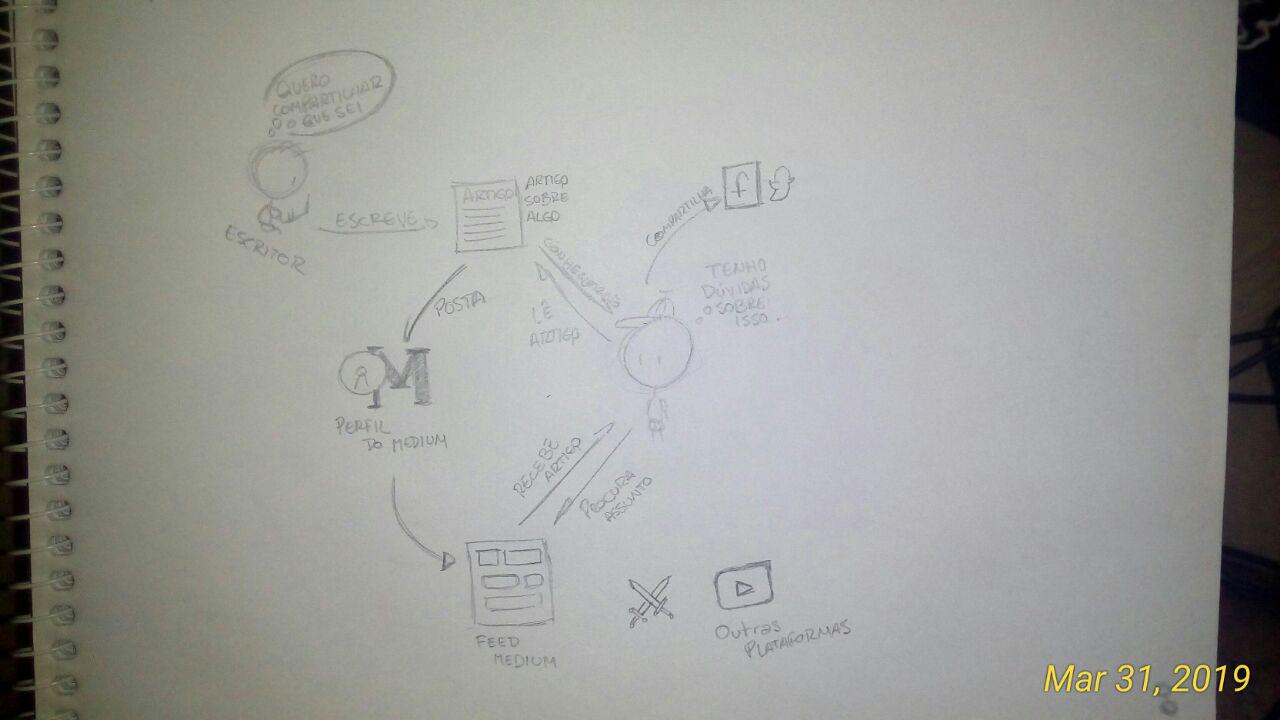 QUERO
COMPARTILHAR
O QUE SEI
ESCRITOR
ESCREVE
ARTIGO
ARTIGO
SOBRE
ALGO
COMPARTILHA
f
CONHECIMENTO
LÊ
ARTIGO
TENHO
DÚVIDAS
SOBRE
ISSO...
POSTA
M
PERFIL
DO MEDIUM
RECEBE
ARTIGO
PROCURA
ASSUNTO
FEED
MEDIUM
Outras
PLATAFORMAS
Mar 31, 2019